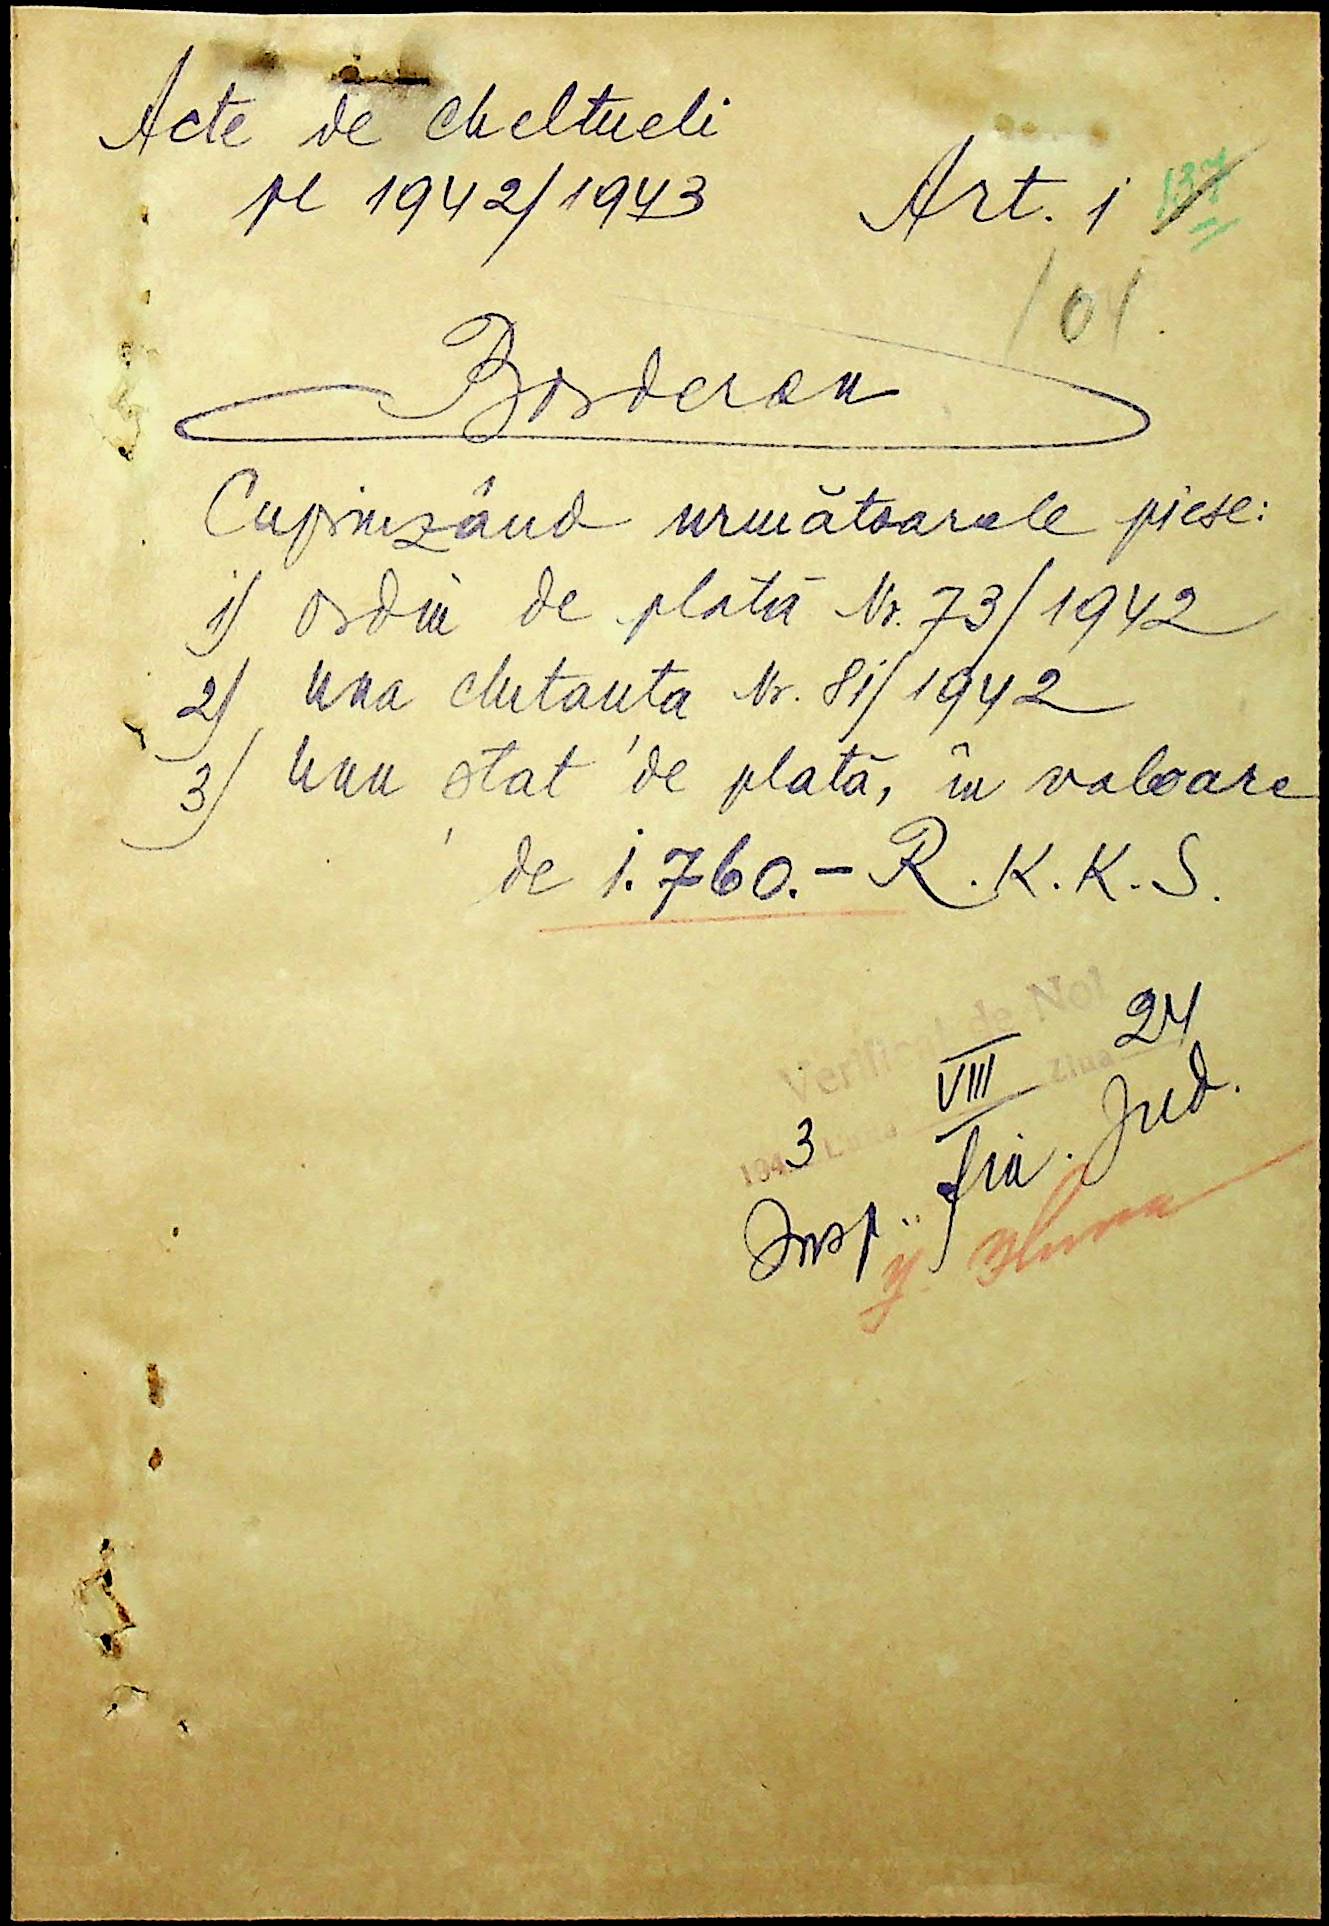 Acte de cheltueli
pe 1942/1943 Art. 1 137
101
Borderou
Cuprinzând următoarele piese:
1) ordin de plată Nr. 73/1942
2) una chitanta Nr. 81/1942
3) unu stat de plată, în valoare
de 1.760.- R.K.K.S.
Verificat de Noi
1943 Luna VIII Ziua 24
Insp. fin. Jud.